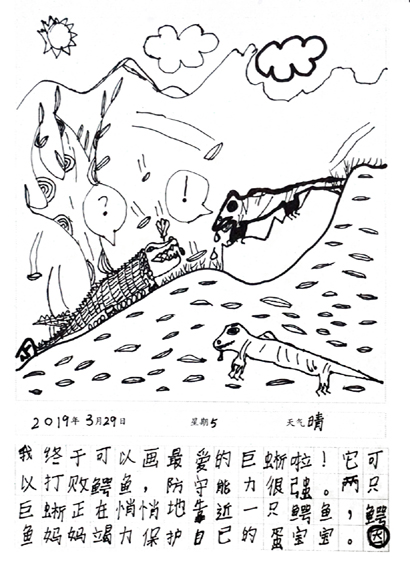 ?
!
2019年 3月29日 星期5 天气晴
我终于可以画最爱的巨蜥啦！它可
以打败鳄鱼，防守能力很强。两只
巨蜥正在悄悄地靠近一只鳄鱼，鳄
鱼妈妈竭力保护自己的蛋宝宝。